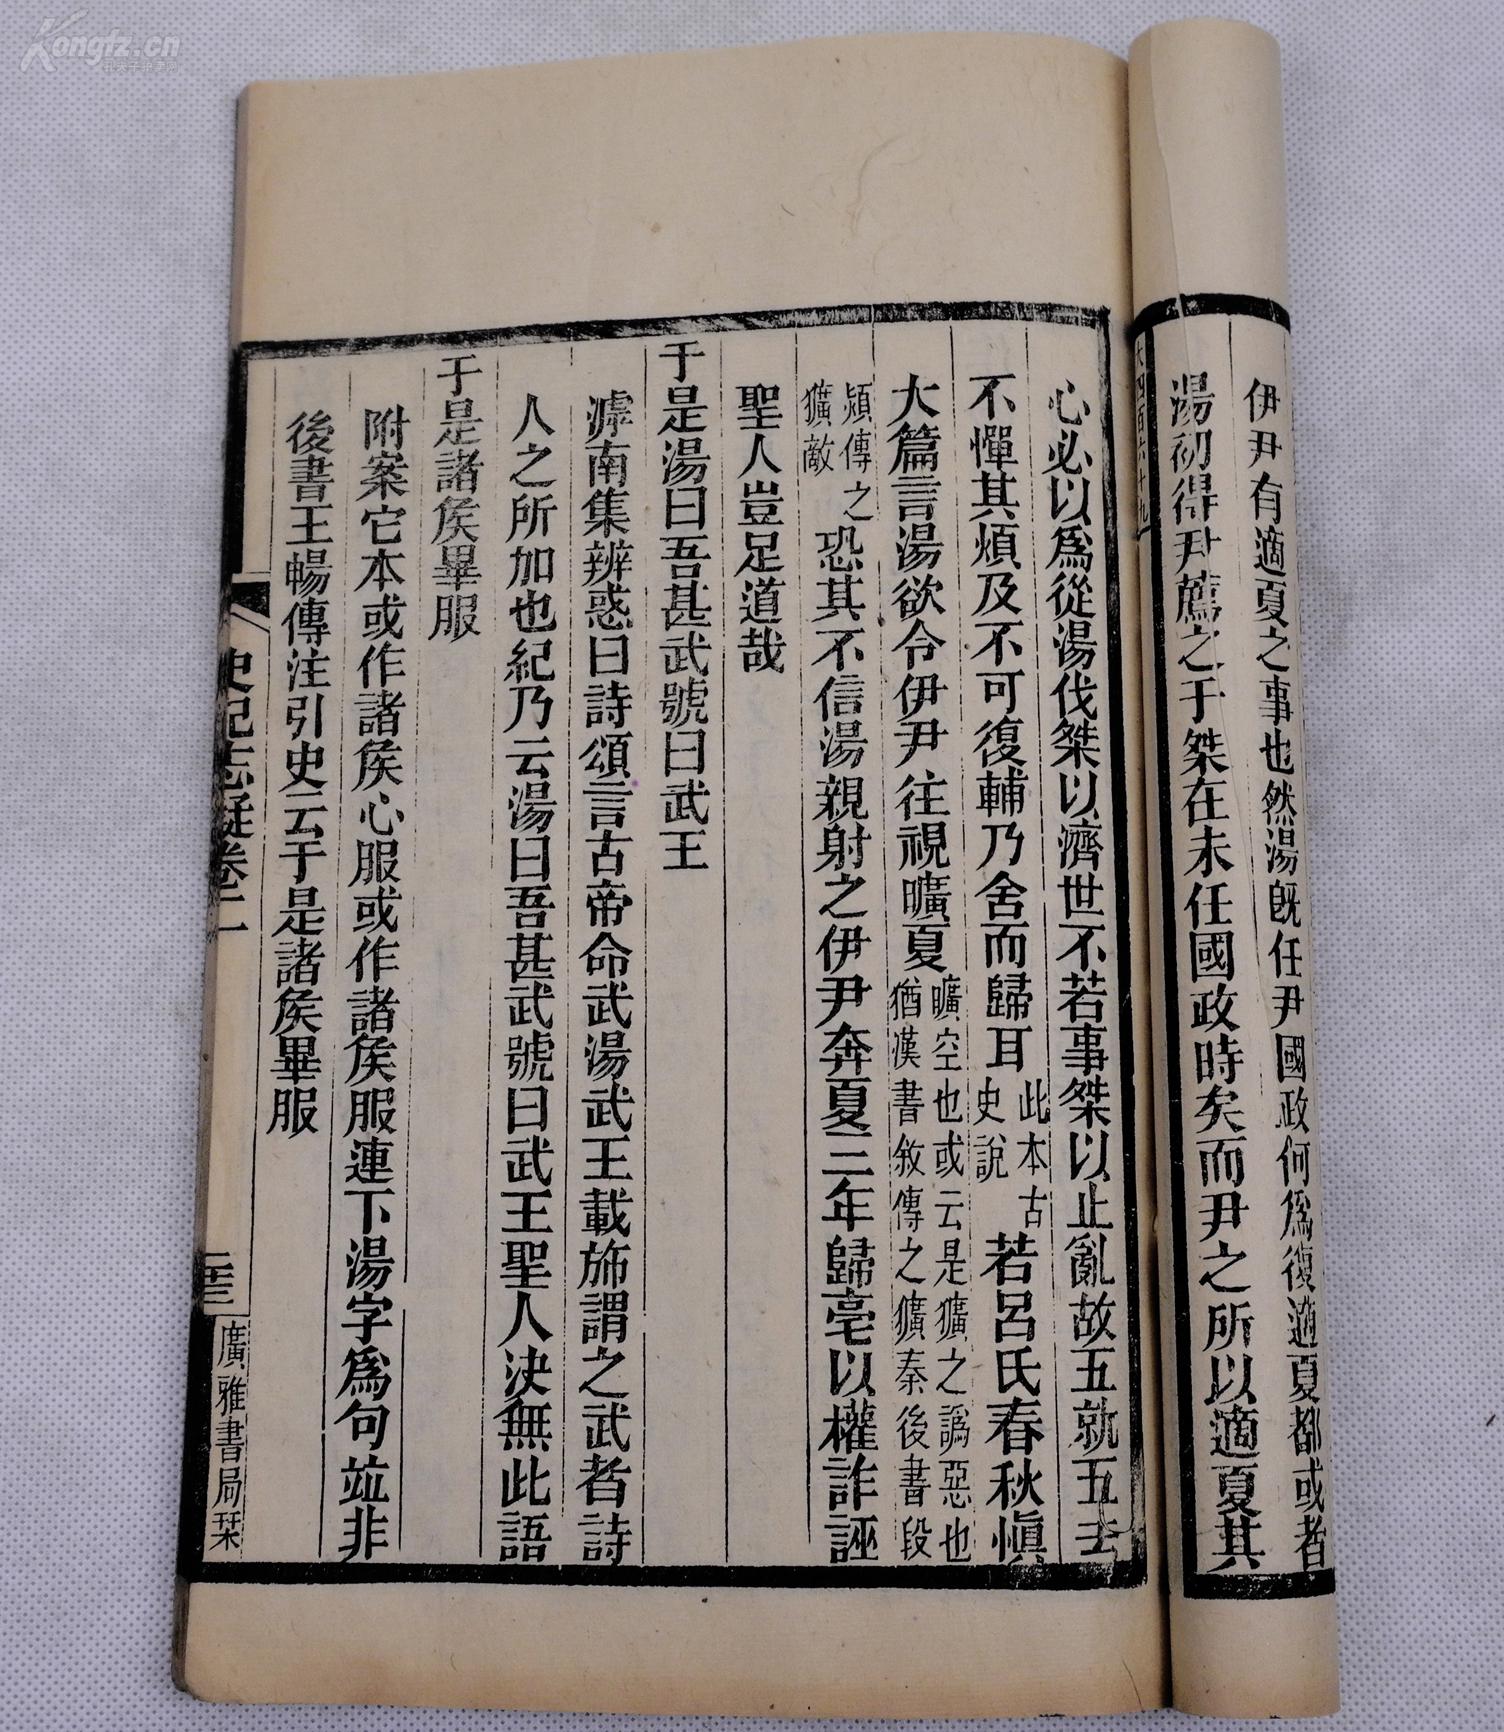 Kongfz.cn
孔夫子拍卖网
伊尹有適夏之事也然湯旣任尹國政何爲復適夏都或者
湯初得尹薦之于桀在未任國政時矣而尹之所以適夏其
大四百六十九
心必以爲從湯伐桀以濟世不若事桀以止亂故五就五去
不憚其煩及不可復輔乃舍而歸耳此本古史說若呂氏春秋愼
大篇言湯欲令伊尹往視曠夏曠空也或云是獷之譌惡也猶漢書敘傳之獷秦後書段
熲傳之獷敵恐其不信湯親射之伊尹奔夏三年歸亳以權詐誣
聖人豈足道哉
于是湯曰吾甚武號曰武王
滹南集辨惑曰詩頌言古帝命武湯武王載斾謂之武者詩
人之所加也紀乃云湯曰吾甚武號曰武王聖人決無此語
于是諸矦畢服
附案它本或作諸矦心服或作諸矦服連下湯字爲句竝非
後書王暢傳注引史云于是諸矦畢服
史記志疑卷二
廣雅書局栞